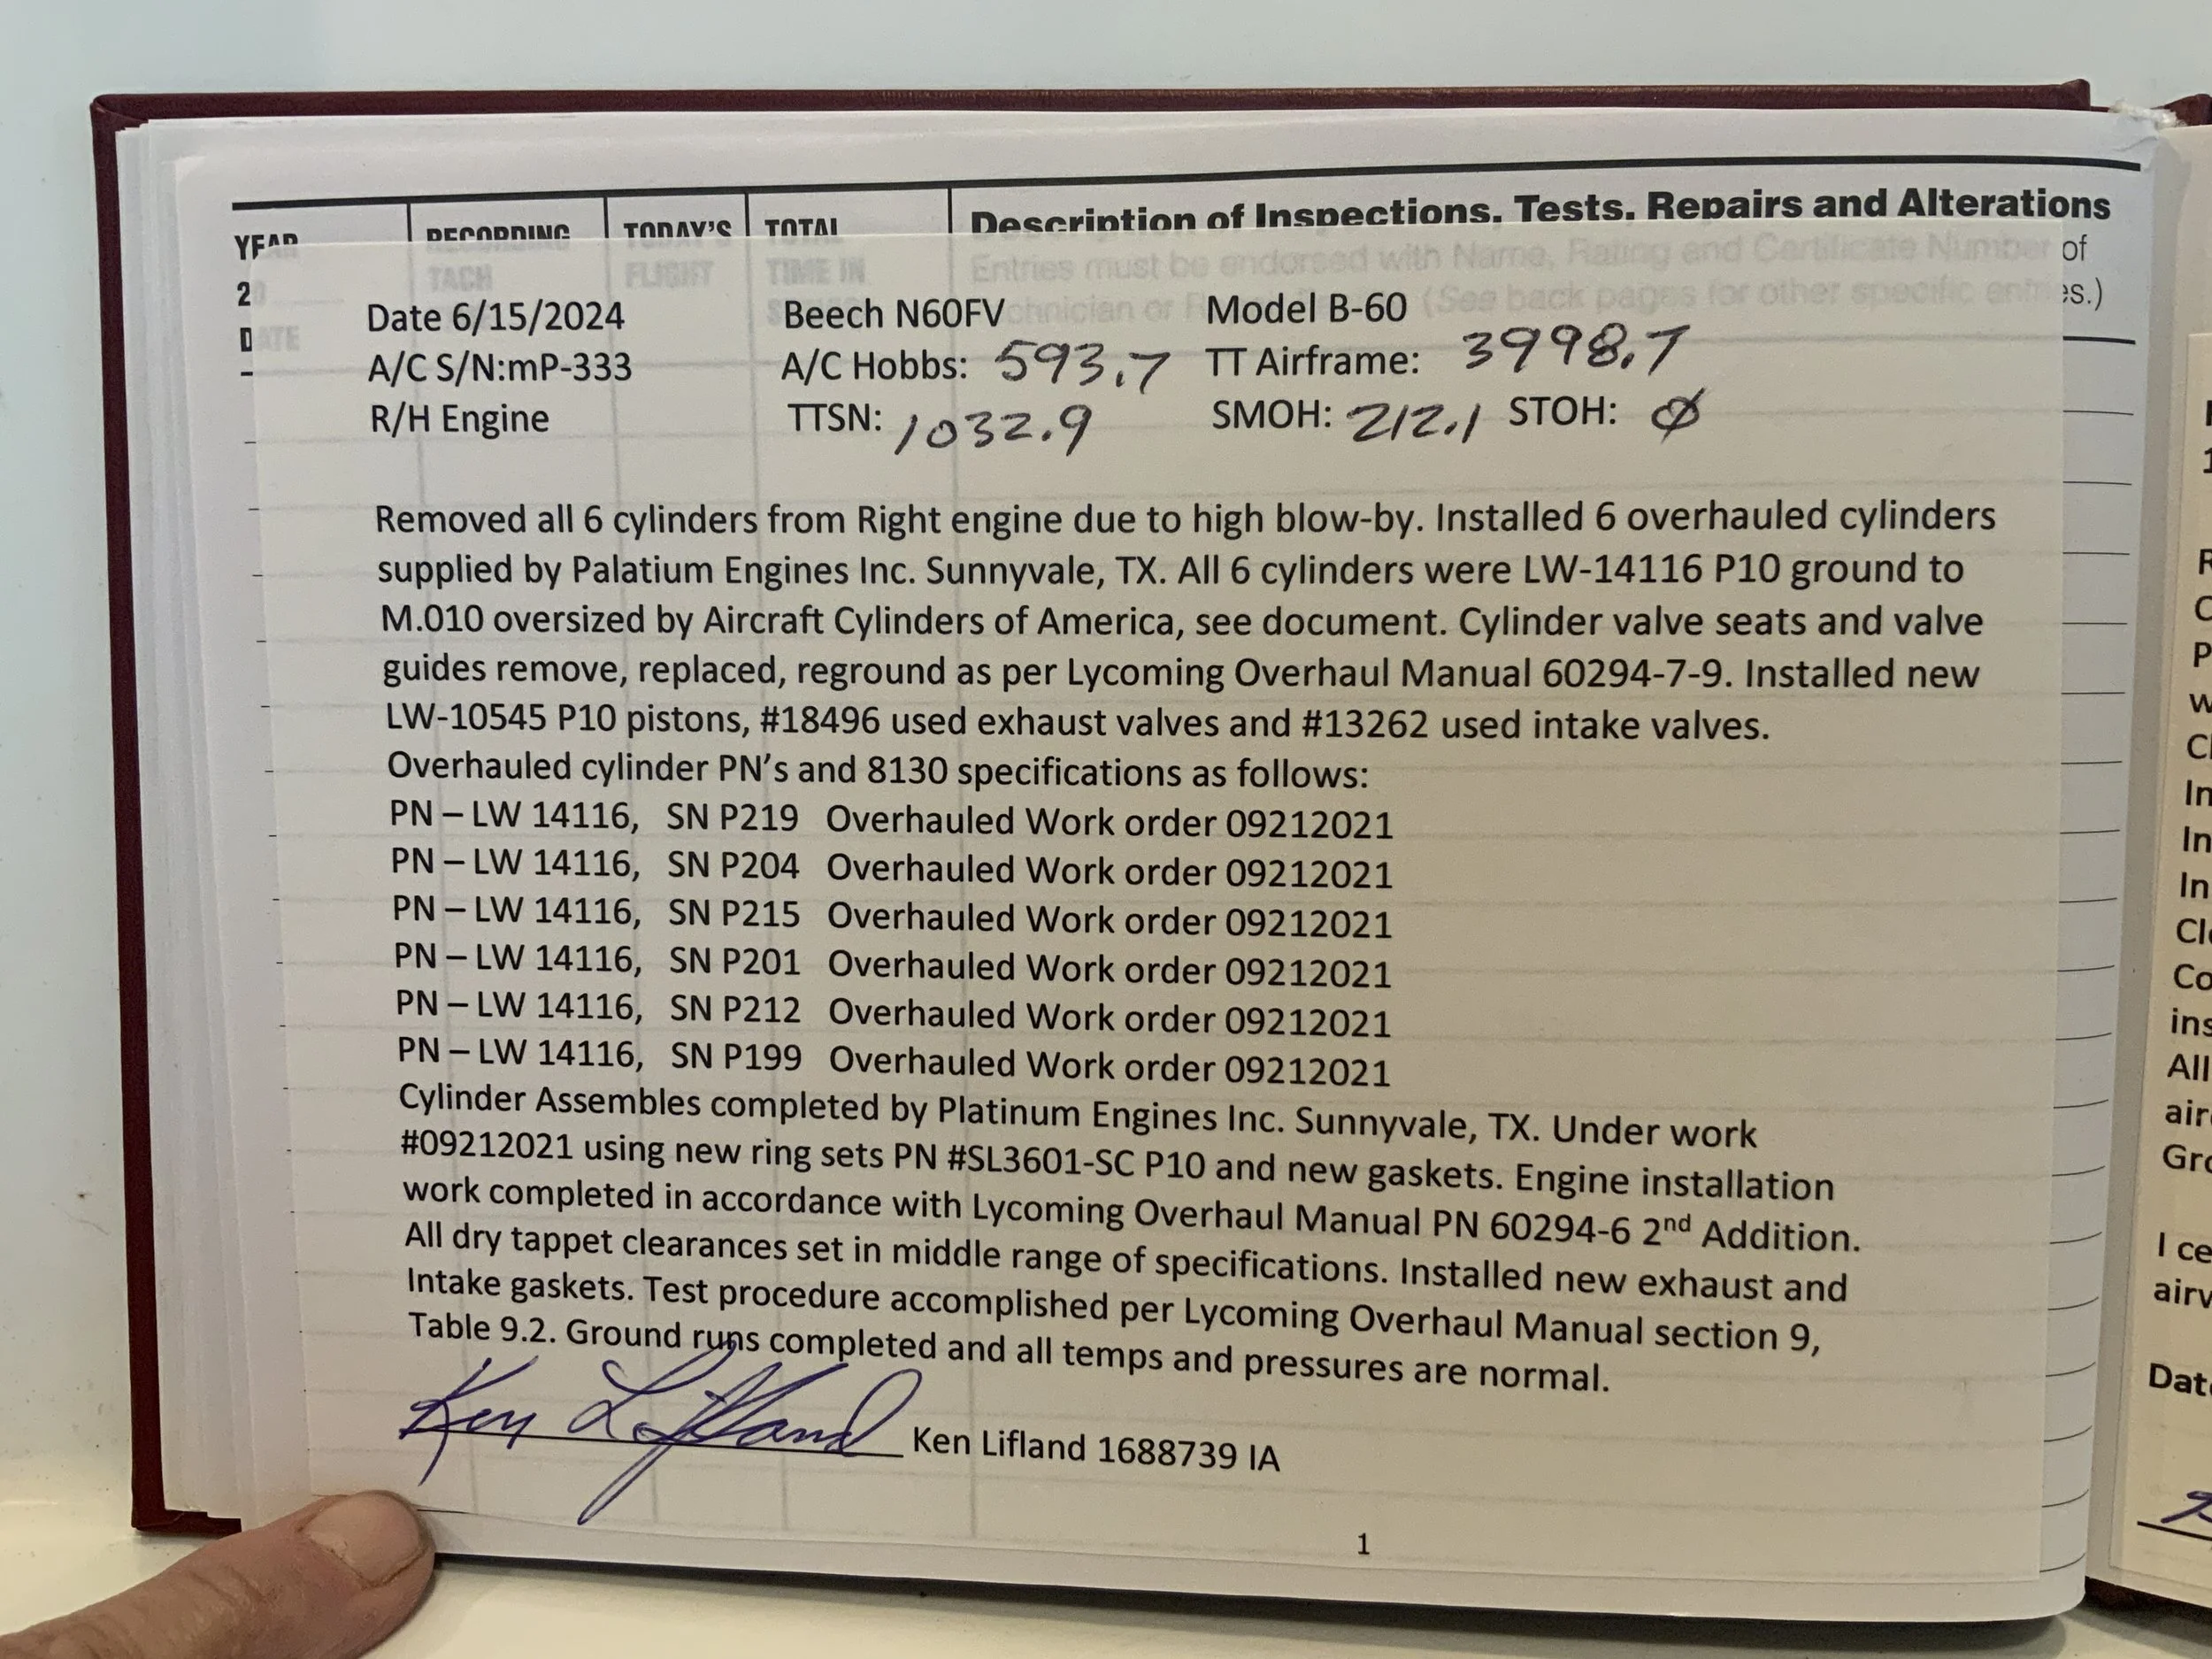 Description of Inspections, Tests, Repairs and Alterations
YEAR RECORDING TODAY'S TOTAL
TACH FLIGHT TIME IN
Entries must be endorsed with Name, Rating and Certificate Number of
20
(See back pages for other specific entries.)
DATE
Date 6/15/2024 Beech N60FV Model B-60
A/C S/N:mP-333 A/C Hobbs: 593.7 TT Airframe: 3998.7
R/H Engine TTSN: 1032.9 SMOH: 212.1 STOH: Ø
Removed all 6 cylinders from Right engine due to high blow-by. Installed 6 overhauled cylinders
supplied by Palatium Engines Inc. Sunnyvale, TX. All 6 cylinders were LW-14116 P10 ground to
M.010 oversized by Aircraft Cylinders of America, see document. Cylinder valve seats and valve
guides remove, replaced, reground as per Lycoming Overhaul Manual 60294-7-9. Installed new
LW-10545 P10 pistons, #18496 used exhaust valves and #13262 used intake valves.
Overhauled cylinder PN's and 8130 specifications as follows:
PN – LW 14116, SN P219 Overhauled Work order 09212021
PN – LW 14116, SN P204 Overhauled Work order 09212021
PN – LW 14116, SN P215 Overhauled Work order 09212021
PN – LW 14116, SN P201 Overhauled Work order 09212021
PN – LW 14116, SN P212 Overhauled Work order 09212021
PN – LW 14116, SN P199 Overhauled Work order 09212021
Cylinder Assembles completed by Platinum Engines Inc. Sunnyvale, TX. Under work
#09212021 using new ring sets PN #SL3601-SC P10 and new gaskets. Engine installation
work completed in accordance with Lycoming Overhaul Manual PN 60294-6 2nd Addition.
All dry tappet clearances set in middle range of specifications. Installed new exhaust and
Intake gaskets. Test procedure accomplished per Lycoming Overhaul Manual section 9,
Table 9.2. Ground runs completed and all temps and pressures are normal.
Ken Lifland Ken Lifland 1688739 IA
1